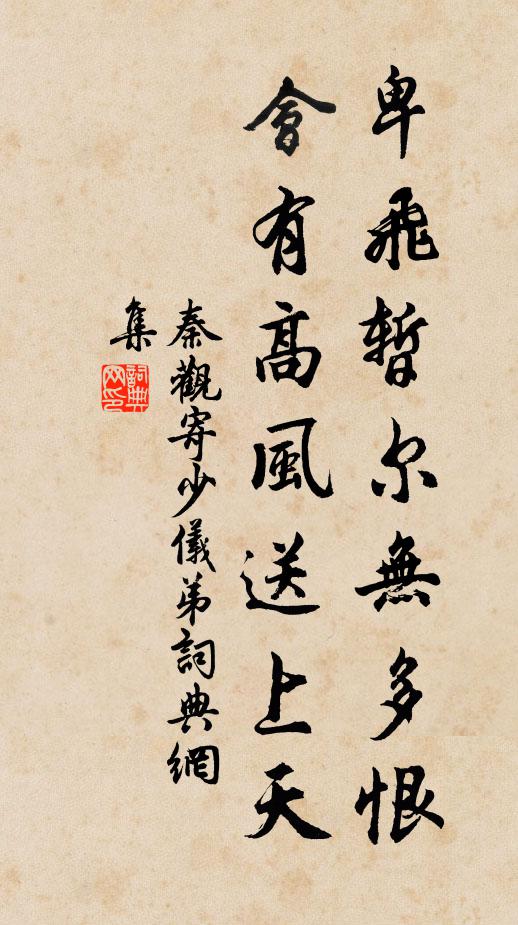 卑飛暫尔無多恨
會有高風送上天
秦觀寄少儀弟詞典網
集
詞典
网印